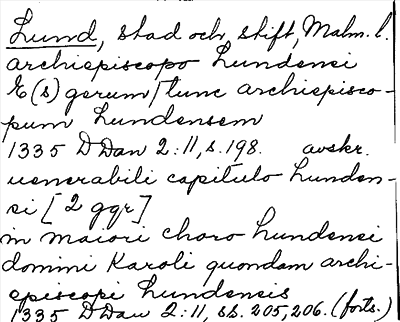 Lund, stad och stift, Malm. l.
archiepiscopo Lundensi
E(s)gerum/tunc archiepisco-
pum Lundensem
1335 DDan 2:11, s. 198. avskr.
uenerabili capitulo Lunden-
si [2 ggr]
in maiori choro Lundensi
domini Karoli quondam archi-
episcopi Lundensis
1335 DDan 2:11, ss. 205, 206. (forts.)